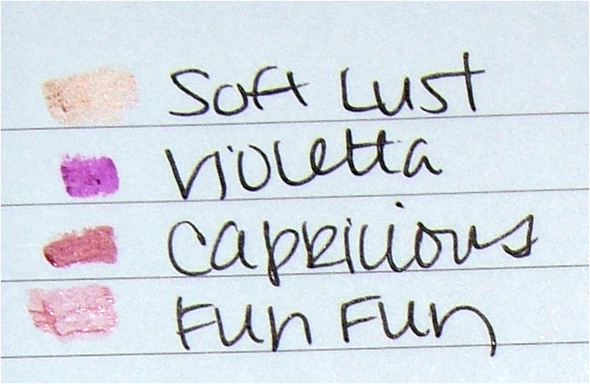 Soft Lust
Violetta
Capricious
Fun Fun